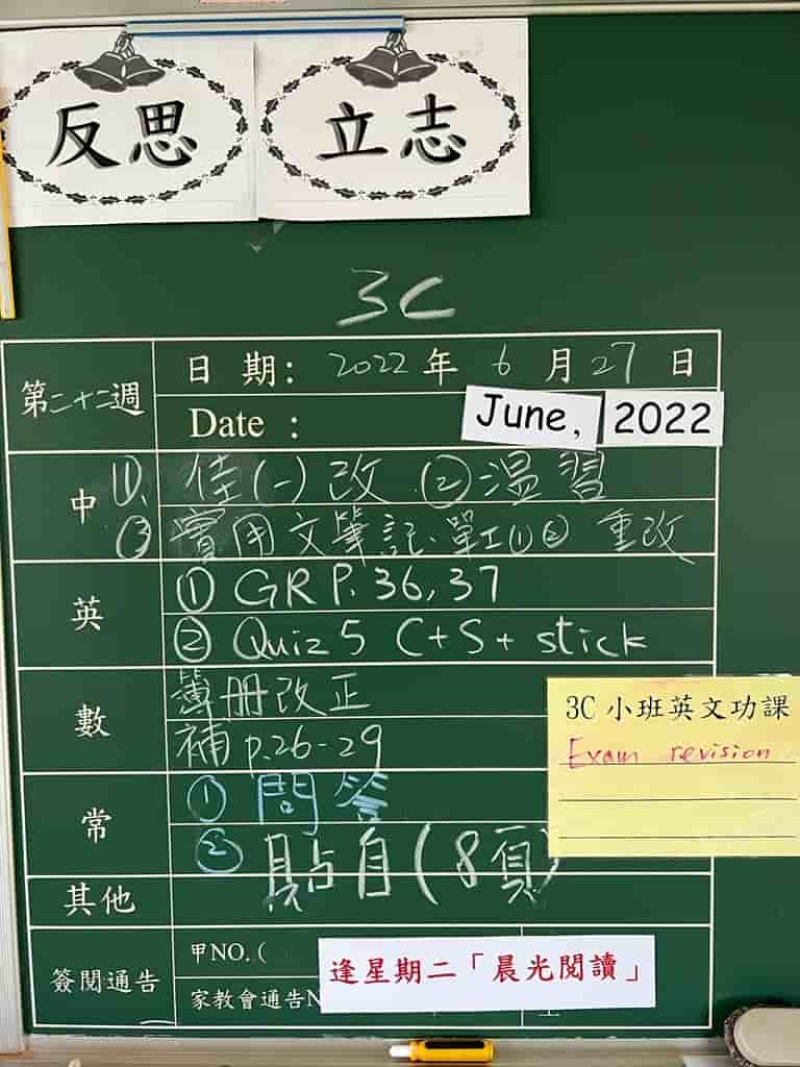 反思 立志
3C
第二十二週
日期: 2022年6月27日
Date : June, 2022
中 ①、佳(一)改 ②溫習
③實用文筆記、單工①② 重改
英 ① GR P. 36, 37
② Quiz 5 C+S+ stick
數 簿冊改正
補 p.26-29
3C 小班英文功課
Exam revision
常 ① 問答
② 貼自(8頁)
其他
簽閱通告 甲NO.(
家教會通告N
逢星期二「晨光閱讀」